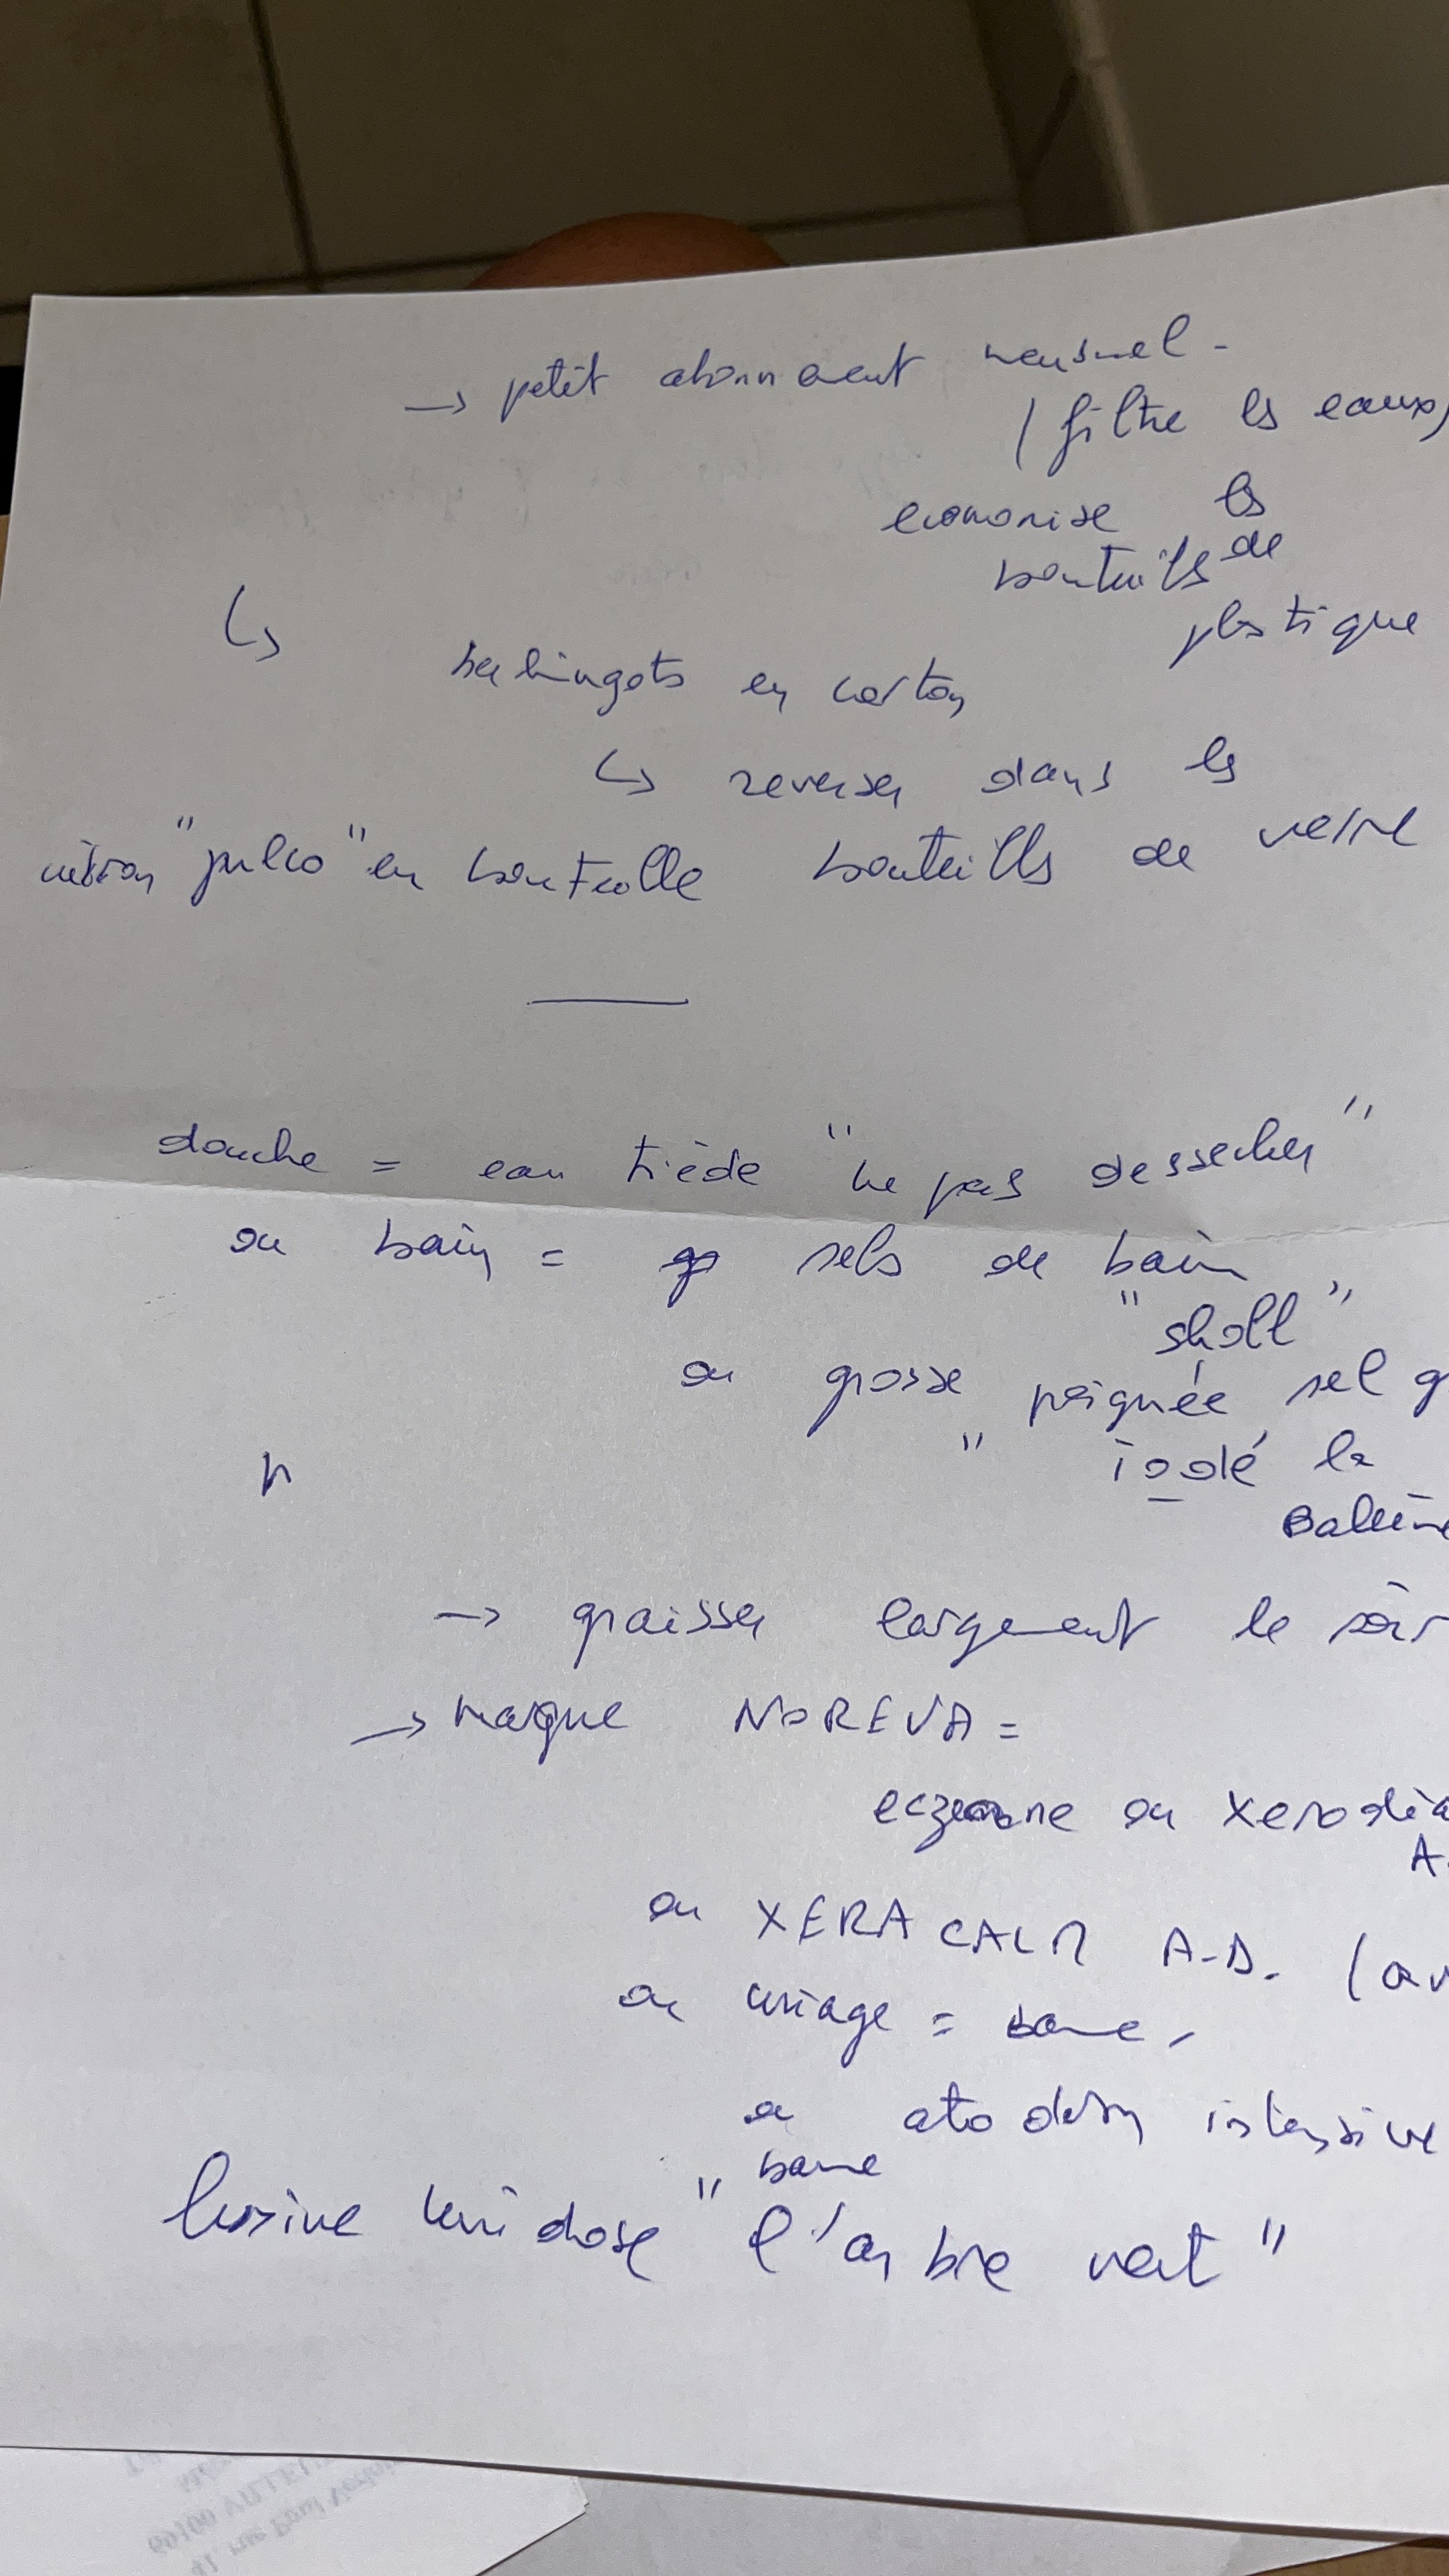 → petit abonnement mensuel -
(filtre les eaux)
economise les
bouteilles de
plastique
↳ berlingots en carton
↳ reverser dans les
citron "pulco" en bouteille bouteilles de verre
douche = eau tiède "ne pas dessecher"
ou bain = sels de bain
"sholl"
ou grosse poignée sel g
" iodé la
Balein
→ graisser largement le soir
→ marque NOREVA =
eczeane ou Xerodia
A.
ou XERACALM A.D. (av
ou uriage = baume,
ou atoderm intensive
baume
lessive unidose "l'arbre vert"
69100 VILLEU